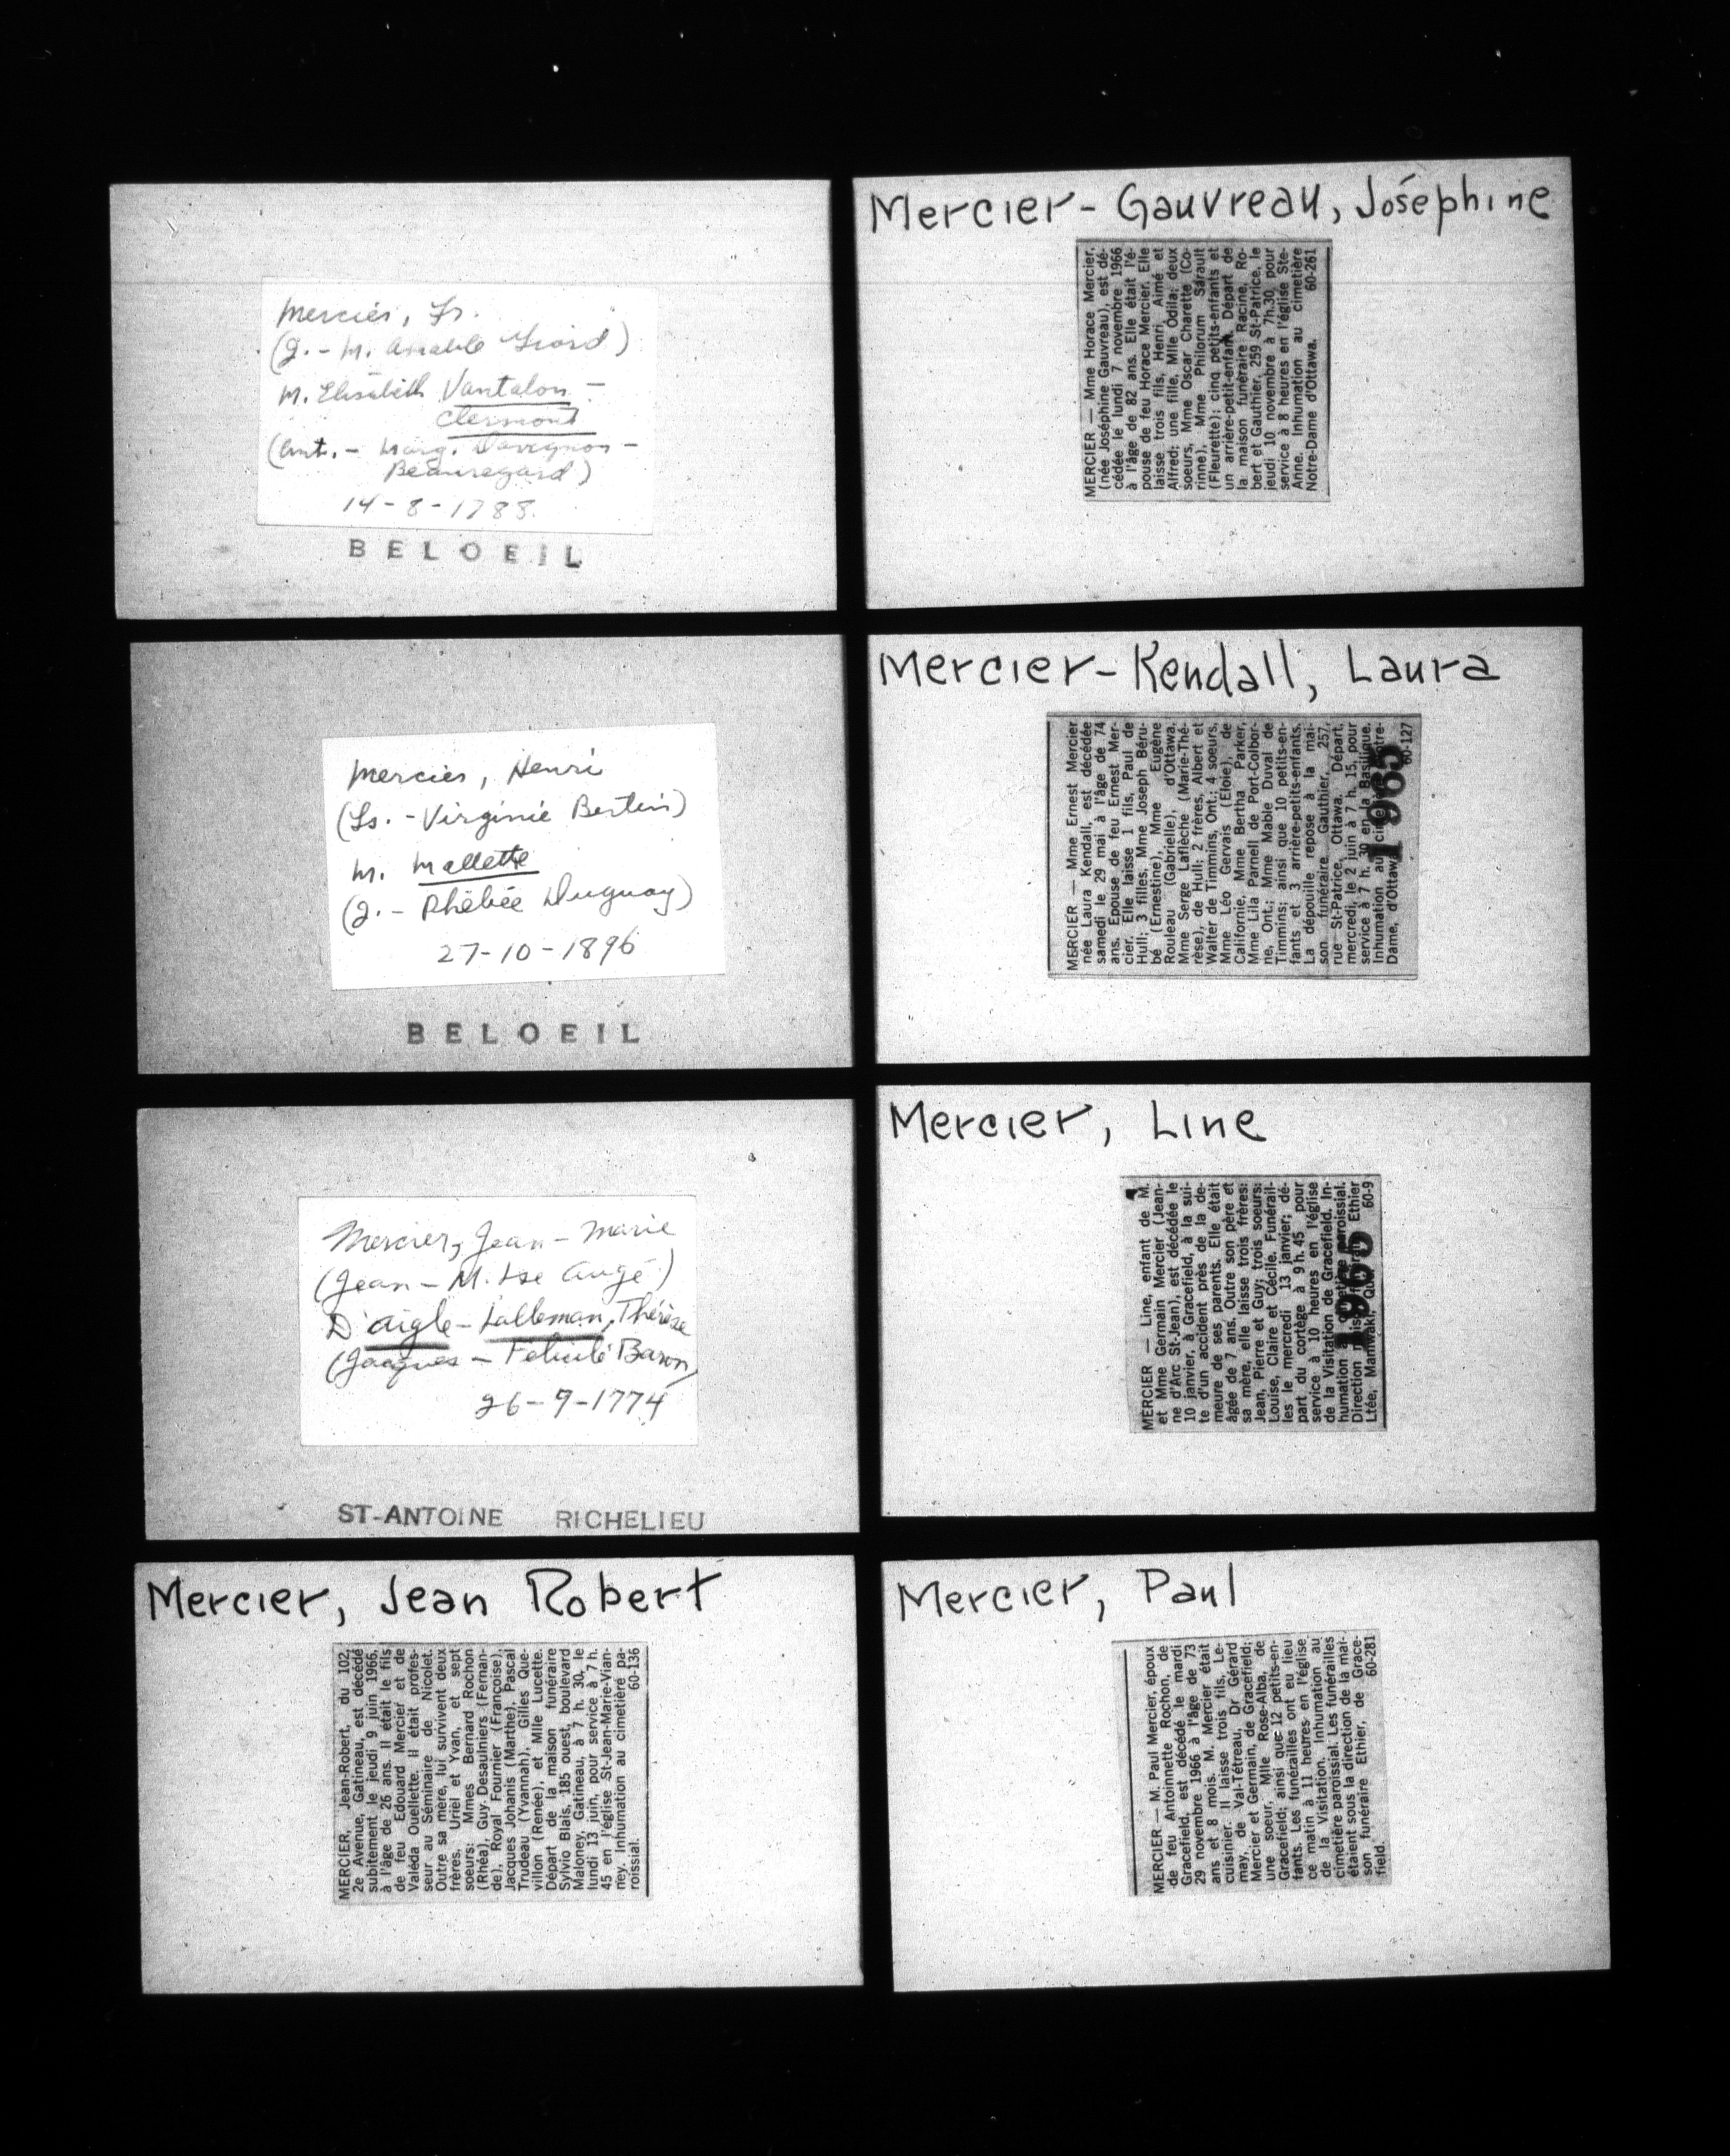 Mercier, Fr.
(J. - M. Amable Giard)
M. Elisabeth Vantalon -
Clermont
(Ant. - Marg. Davignon -
Beauregard)
14-8-1788.
BELOEIL
Mercier, Henri
(Ls. - Virginie Bertin)
M. Mallette
(J. - Phébée Duguay)
27-10-1896
BELOEIL
Mercier, Jean-Marie
(Jean - M. Lse Augé)
D'aigle-Lalleman, Thérèse
(Jacques - Félicité Baron)
26-9-1774
ST-ANTOINE RICHELIEU
Mercier, Jean Robert
MERCIER, Jean-Robert, du 102,
2e Avenue, Gatineau, est décédé
subitement le jeudi 9 juin 1966,
à l'âge de 26 ans. Il était le fils
de feu Edouard Mercier et de
Valéda Ouellette. Il était profes-
seur au Séminaire de Nicolet.
Outre sa mère, lui survivent deux
frères, Uriel et Yvan, et sept
soeurs: Mmes Bernard Rochon
(Rhéa), Guy Desaulniers (Fernan-
de), Royal Fournier (Françoise),
Jacques Johanis (Marthe), Pascal
Trudeau (Yvannah), Gilles Que-
villon (Renée), et Mlle Lucette.
Départ de la maison funéraire
Sylvio Blais, 185 ouest, boulevard
Maloney, Gatineau, à 7 h. 30, le
lundi 13 juin, pour service à 7 h.
45 en l'église St-Jean-Marie-Vian-
ney. Inhumation au cimetière pa-
roissial. 60-136
Mercier-Gauvreau, Joséphine
MERCIER — Mme Horace Mercier,
(née Joséphine Gauvreau), est dé-
cédée le lundi 7 novembre 1966
à l'âge de 82 ans. Elle était l'é-
pouse de feu Horace Mercier. Elle
laisse trois fils, Henri, Aimé et
Alfred; une fille, Mlle Odila; deux
soeurs, Mme Oscar Charette (Co-
rinne), Mme Philorum Sarault
(Fleurette); cinq petits-enfants et
un arrière-petit-enfant. Départ de
la maison funéraire Racine, Ro-
bert et Gauthier, 259 St-Patrice, le
jeudi 10 novembre à 7h.30, pour
service à 8 heures en l'église Ste-
Anne. Inhumation au cimetière
Notre-Dame d'Ottawa. 60-261
Mercier-Kendall, Laura
MERCIER — Mme Ernest Mercier
née Laura Kendall, est décédée
samedi le 29 mai à l'âge de 74
ans. Epouse de feu Ernest Mer-
cier. Elle laisse 1 fils, Paul de
Hull; 3 filles, Mme Joseph Béru-
bé (Ernestine), Mme Eugène
Rouleau (Gabrielle), d'Ottawa,
Mme Serge Laflèche (Marie-Thé-
rèse), de Hull; 2 frères, Albert et
Walter de Timmins, Ont.; 4 soeurs,
Mme Léo Gervais (Eloie), de
Californie, Mme Bertha Parker,
Mme Lila Parnell de Port-Colbor-
ne, Ont.; Mme Mable Duval de
Timmins; ainsi que 10 petits-en-
fants et 3 arrière-petits-enfants.
La dépouille repose à la mai-
son funéraire Gauthier, 257,
rue St-Patrice, Ottawa. Départ,
mercredi, le 2 juin à 7 h. 15, pour
service à 7 h. 30 en la Basilique.
Inhumation au cimetière Notre-
Dame, d'Ottawa. 60-127
1965
Mercier, Line
MERCIER — Line, enfant de M.
et Mme Germain Mercier (Jean-
ne d'Arc St-Jean), est décédée le
10 janvier, à Gracefield, à la sui-
te d'un accident près de la de-
meure de ses parents. Elle était
âgée de 7 ans. Outre son père et
sa mère, elle laisse trois frères:
Jean, Pierre et Guy; trois soeurs:
Louise, Claire et Cécile. Funérail-
les le mercredi 13 janvier; dé-
part du cortège à 9 h. 45 pour
service à 10 heures en l'église
de la Visitation de Gracefield. In-
humation au cimetière paroissial.
Direction maison funéraire Ethier
Ltée, Maniwaki, Qué. 60-9
1965
Mercier, Paul
MERCIER — M. Paul Mercier, époux
de feu Antoinnette Rochon, de
Gracefield, est décédé le mardi
29 novembre 1966 à l'âge de 73
ans et 8 mois. M. Mercier était
cuisinier. Il laisse trois fils, Le-
may, de Val-Tétreau, Dr Gérard
Mercier et Germain, de Gracefield;
une soeur, Mlle Rose-Alba, de
Gracefield; ainsi que 12 petits-en-
fants. Les funérailles ont eu lieu
ce matin à 11 heures en l'église
de la Visitation. Inhumation au
cimetière paroissial. Les funérailles
étaient sous la direction de la mai-
son funéraire Ethier, de Grace-
field. 60-281